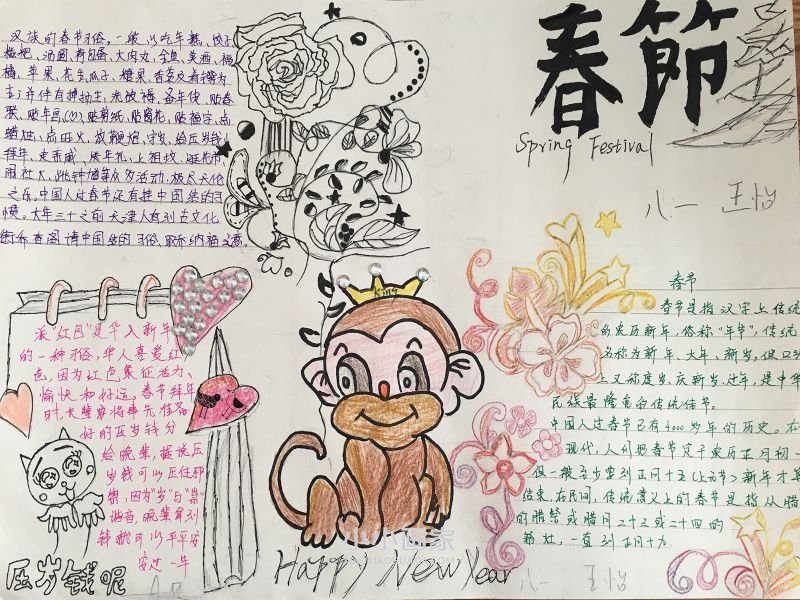 春節
Spring Festival
八一 王怡
汉族的春节习俗,一般以吃年糕、饺子
糍粑、汤圆、荷包蛋、大肉丸、全鱼、美酒、福
橘、苹果、花生、瓜子、糖果、香茗及肴馔为
主;并伴有掸扬尘、洗被褥、备年货、贴春
联、贴年画、贴剪纸、贴窗花、贴福字、点
蜡烛、点旺火、放鞭炮、守岁、给压岁钱、
拜年、走亲戚、送年礼、上祖坟、逛花市、
闹社火、跳钟馗等众多活动,极尽天伦
之乐。中国人过春节还有挂中国结的习
惯,大年三十之前天津人有到古文化
街 请中国结的习俗,取 纳福之意。
派"红包"是华人新年
的一种习俗,华人喜爱红
色,因为红色象征活力、
愉快和好运。春节拜年
时,长辈要将事先准备
好的压岁钱分
给晚辈,据说压
岁钱可以压住邪
祟,因为"岁"与"祟"
谐音,晚辈拿到
钱就可以平平安
安过一年
压岁钱呢
King
Happy New Year
八一 王怡
春节
春节是指汉字上传统
的农历新年,俗称"年节",传统
名称为新年、大年、新岁,但口头
上又称度岁、庆新岁、过年,是中华
民族最隆重的传统佳节。
中国人过春节已有4000多年的历史。在
现代,人们把春节定于农历正月初一
但一般至少要到正月十五(上元节)新年才算
结束,在民间,传统意义上的春节是指从腊
的腊祭或腊月二十三或二十四的
祭灶,一直到正月十九